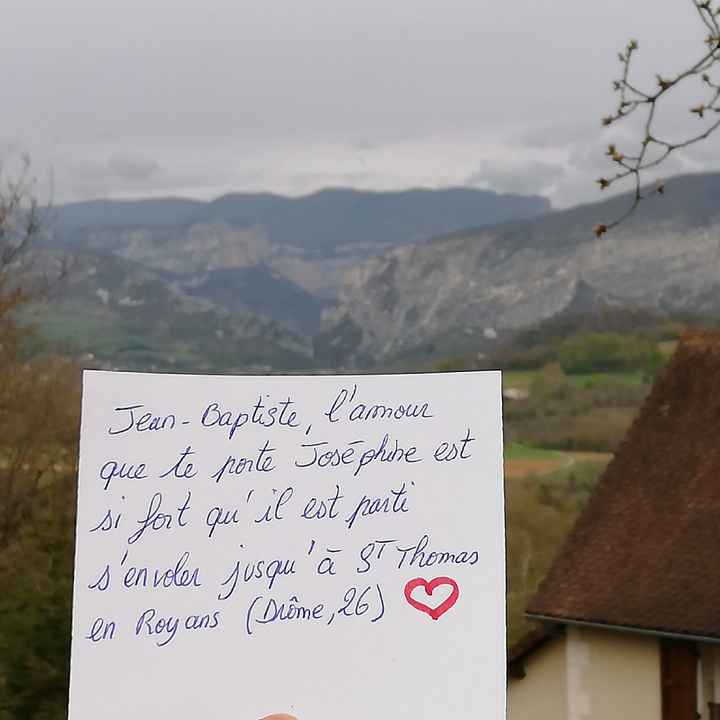 Jean-Baptiste, l'amour
que te porte Joséphine est
si fort qu'il est parti
s'envoler jusqu'à ST Thomas
en Royans (Drôme, 26)